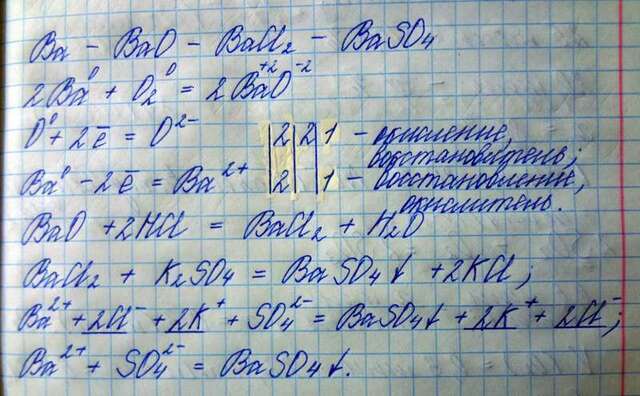 Ba – BaO – BaCl₂ – BaSO₄
2Ba⁰ + O₂⁰ = 2Ba⁺²O⁻²
O⁰ + 2ē = O²⁻ |2|2|1 – окисление, восстановитель;
Ba⁰ – 2ē = Ba²⁺ |2| |1 – восстановление, окислитель.
BaO + 2HCl = BaCl₂ + H₂O
BaCl₂ + K₂SO₄ = BaSO₄↓ + 2KCl;
Ba²⁺ + 2Cl⁻ + 2K⁺ + SO₄²⁻ = BaSO₄↓ + 2K⁺ + 2Cl⁻;
Ba²⁺ + SO₄²⁻ = BaSO₄↓.